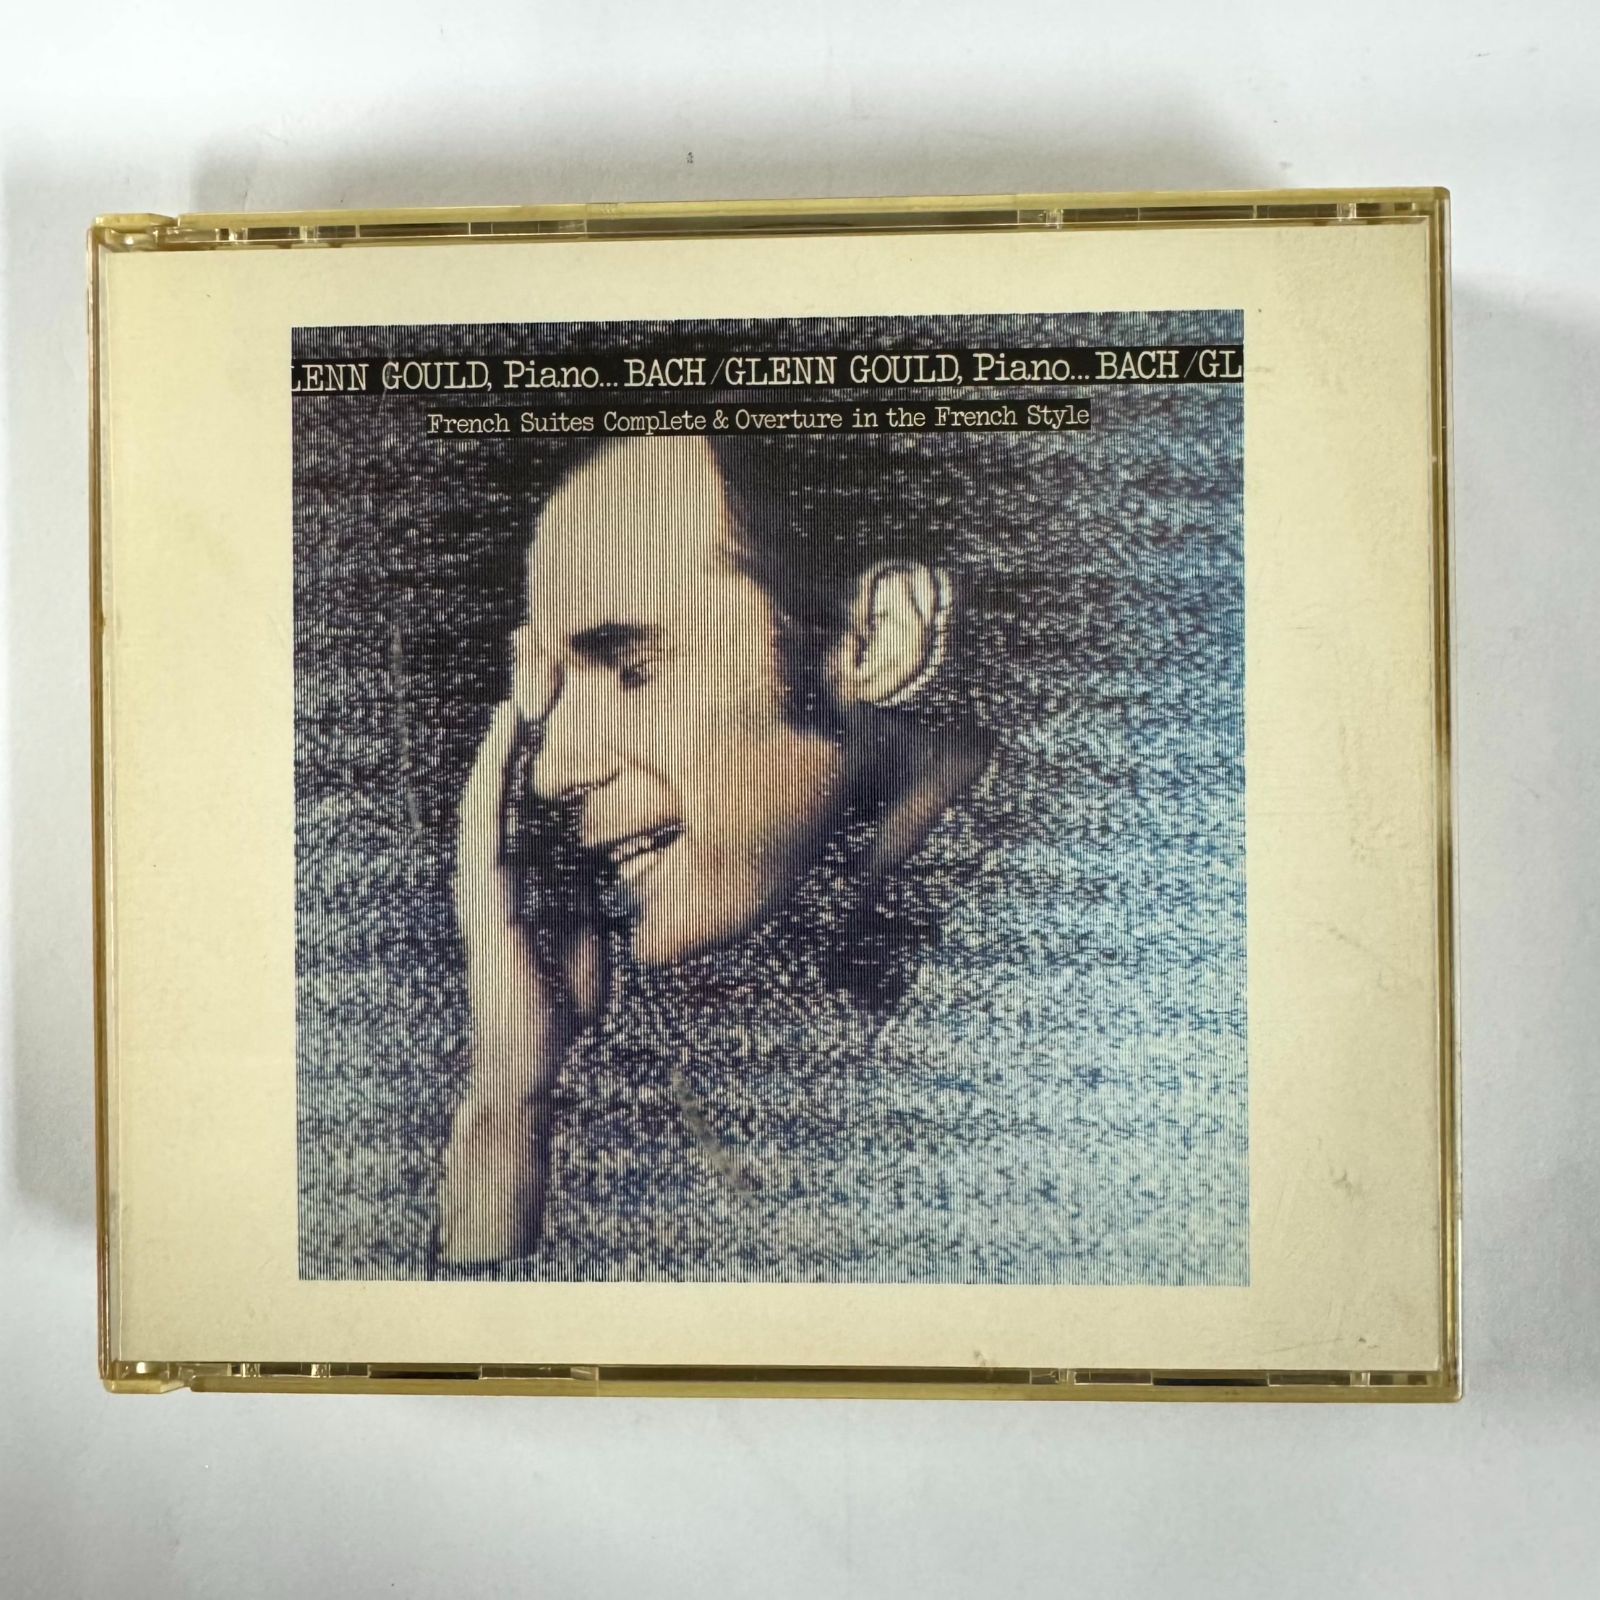 LENN GOULD, Piano... BACH/GLENN GOULD, Piano... BACH/GL
French Suites Complete & Overture in the French Style